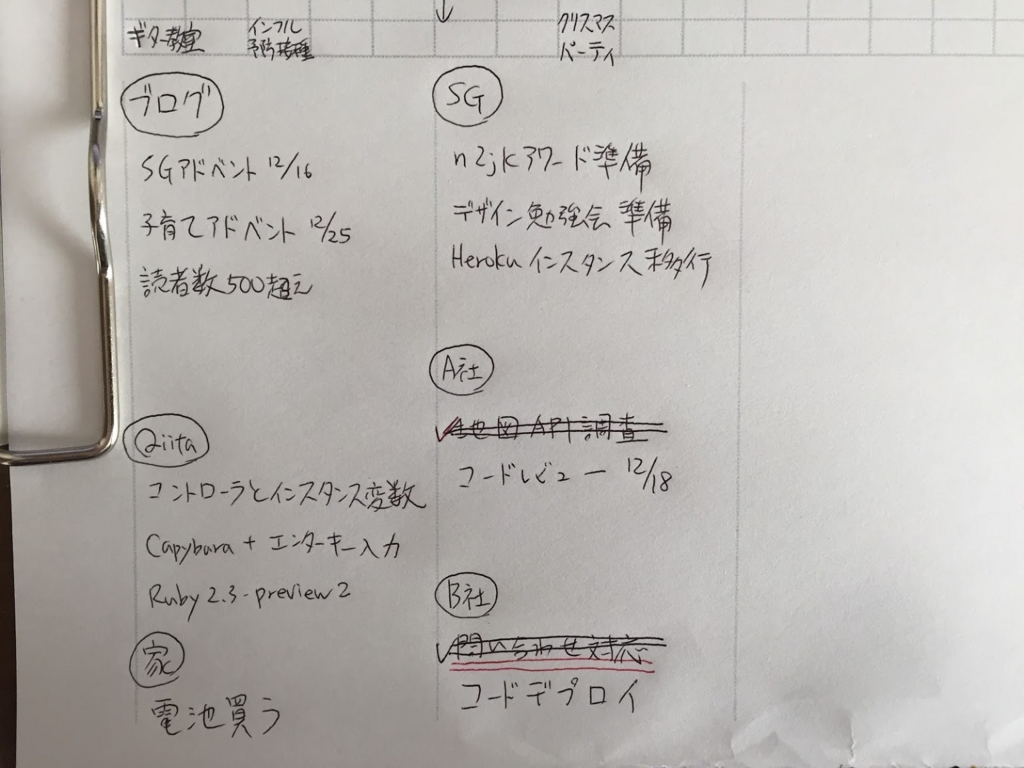 ギター教室
インフル
予防接種
クリスマス
パーティ
ブログ
SGアドベント 12/16
子育てアドベント 12/25
読者数500超え
Qiita
コントローラとインスタンス変数
Capybara + エンターキー入力
Ruby 2.3-preview2
家
電池買う
SG
n2jkアワード準備
デザイン勉強会 準備
Heroku インスタンス移行
A社
地図API調査
コードレビュー 12/18
B社
問い合わせ対応
コードデプロイ